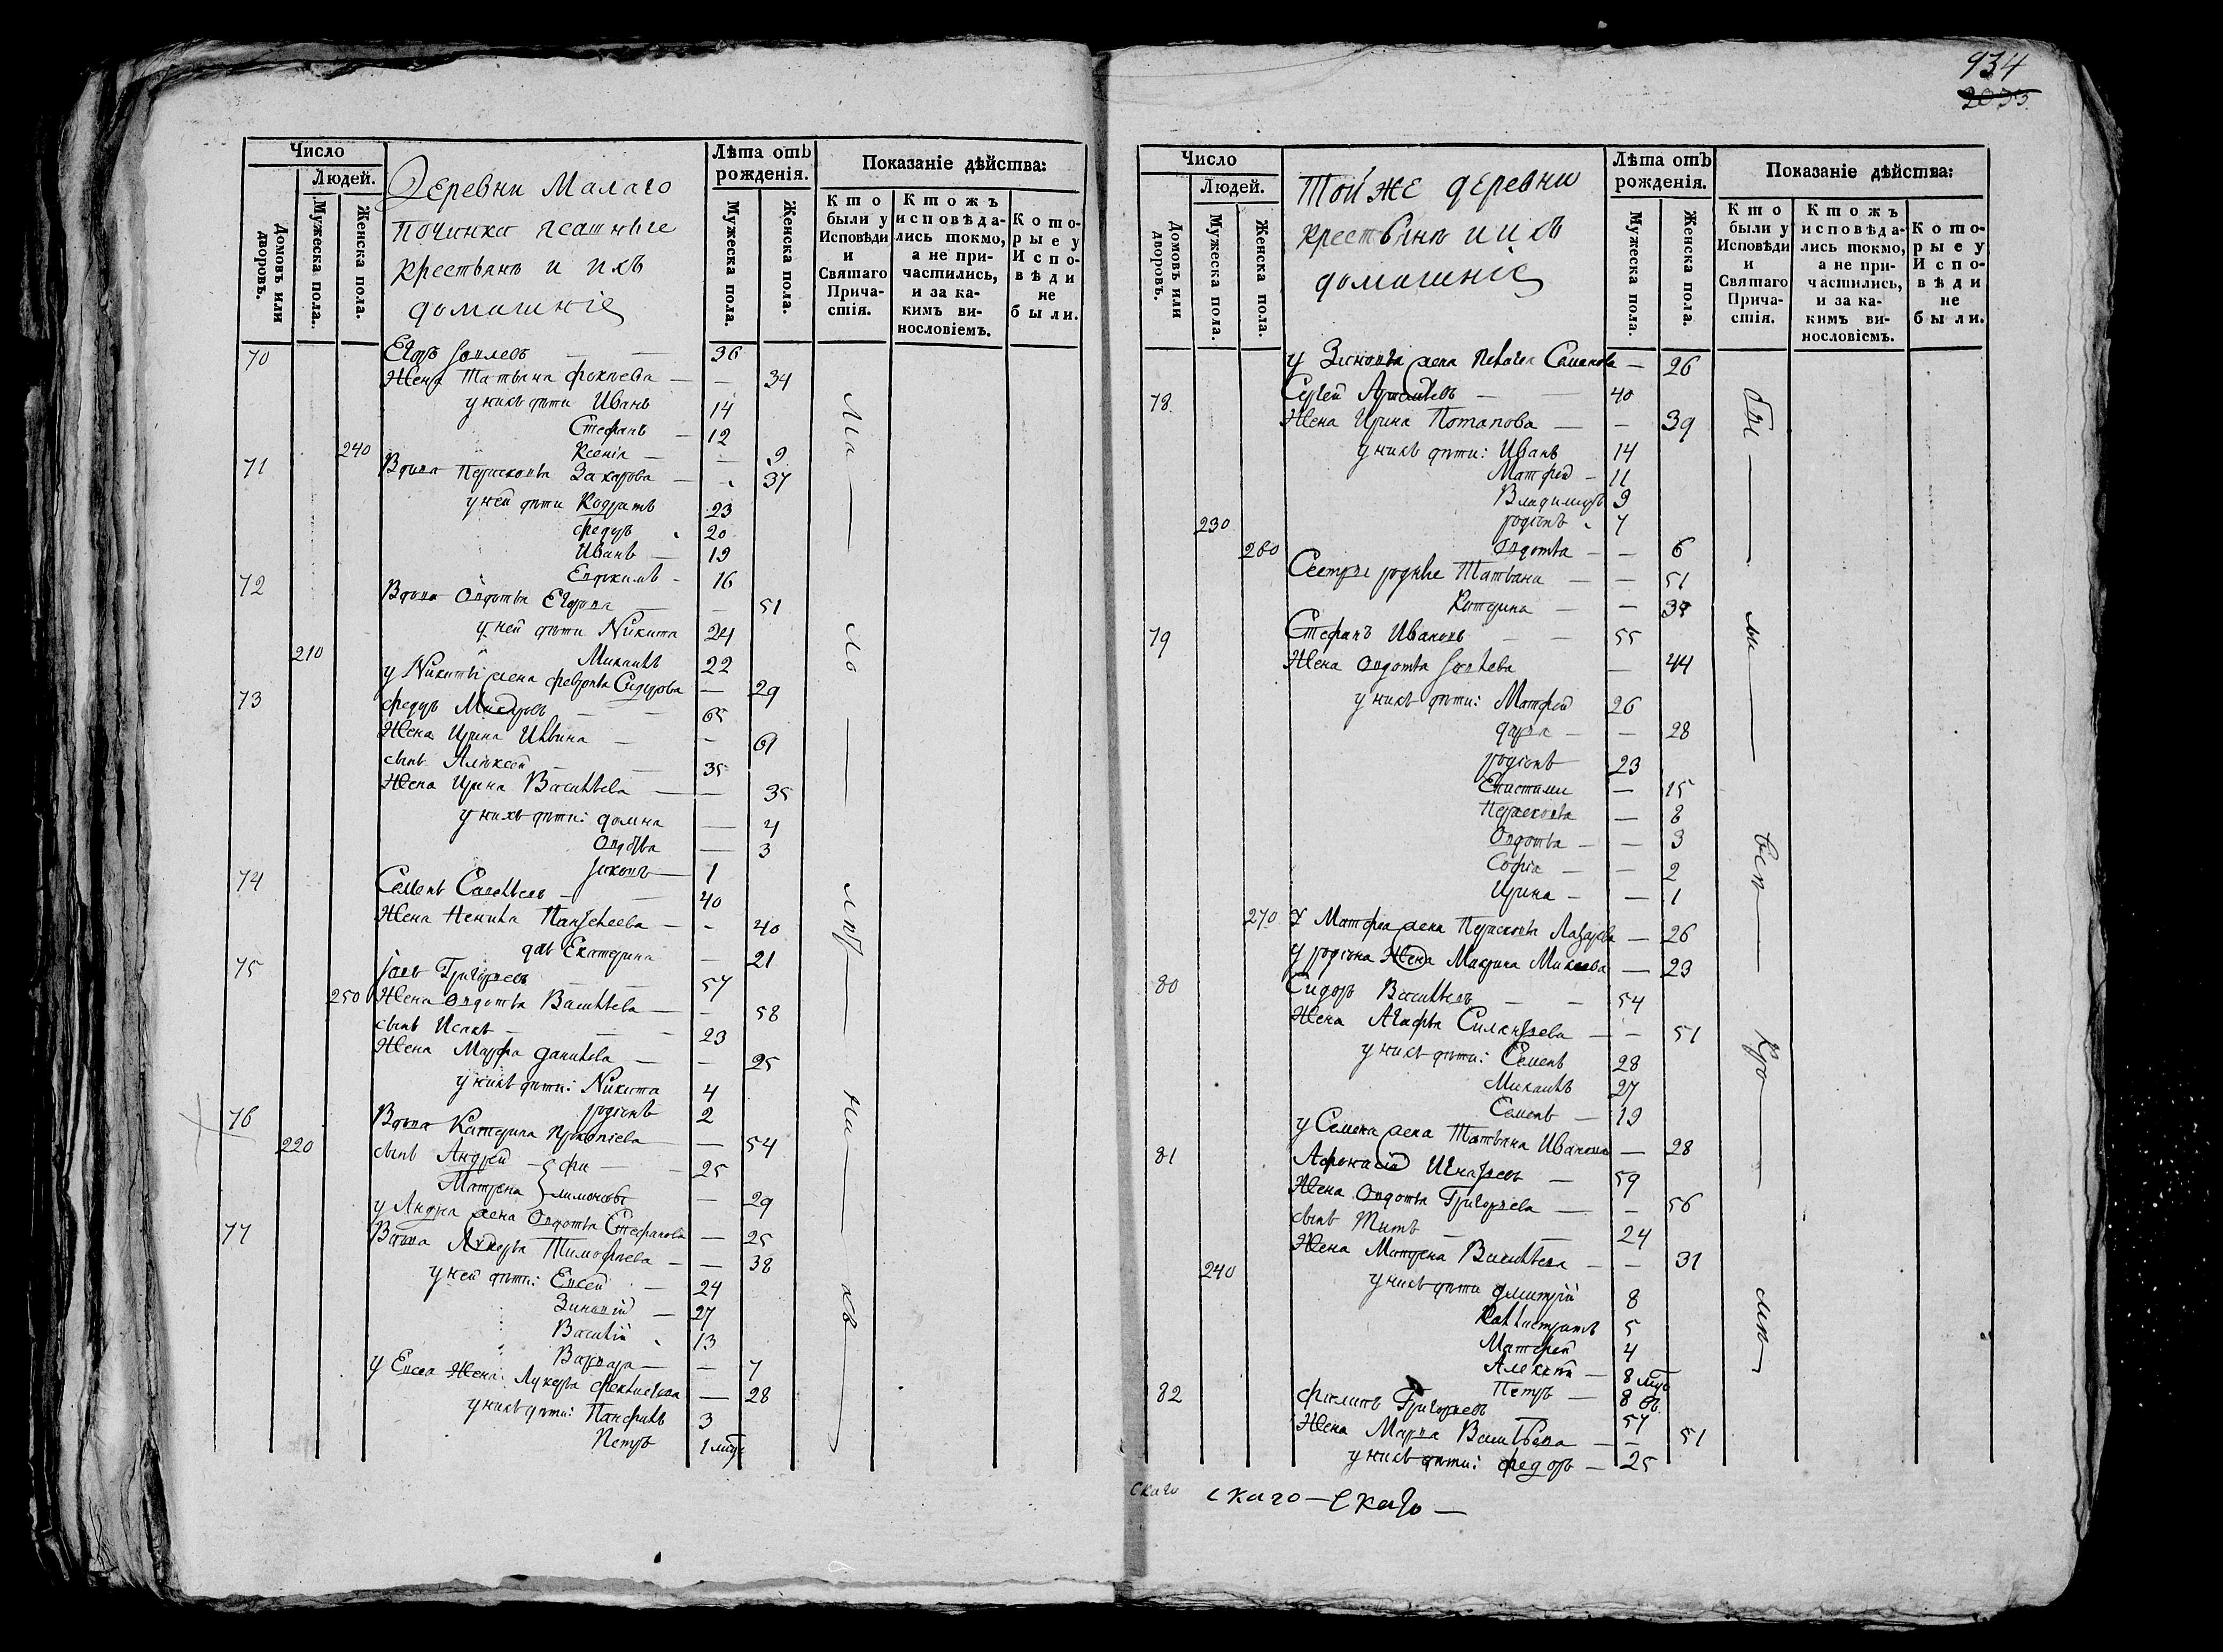 934
2033
Число
Людей.
Домовъ или дворовъ.
Мужеска пола.
Женска пола.
Деревни Малаго
Починка ясашные
крестьянъ и ихъ
домашніе
Лѣта отъ рожденія.
Мужеска пола.
Женска пола.
Показаніе дѣйства:
Кто были у Исповѣди и Святаго Причастія.
Ктожъ исповѣдались токмо, а не причастились, и за какимъ винословіемъ.
Которые у Исповѣди не были.
70 Егоръ 36
Жена Татьяна Фокѣева — — 34
у нихъ дѣти Иванъ 14
Стефанъ — 12
240 Ксенія — — 9
71 Вдова Парасковья Захарова — 37
у ней дѣти Кодратъ 23
Федоръ 20
Иванъ — 19
Евдокимъ - 16
72 Вдова Овдотья Егорова — 51
у ней дѣти Никита 24
210 Михаилъ 22
у Никиты жена Февронья Сидорова — 29
73 Федоръ 65
Жена Ирина Ильина — - 61
сынъ Алексей 35
Жена Ирина Васильева — — 35
у нихъ дѣти: Домна — 4
Овдотья — 3
Іаковъ — 1
74 Семенъ Савельевъ — 40
Жена Ненила Пантелеева — - 40
дочь Екатерина — 21
75 Іовъ Григорьевъ 57
250 Жена Овдотья Васильева — - 58
сынъ Исакъ — 23
Жена Марфа Данилова — — 25
у нихъ дѣти: Никита 4
Родіонъ 2
76 Вдова Катерина Прокопіева — 54
220 сынъ Андрей — фи — 25
Матрена лимоновы — 29
у Андрея жена Овдотья Стефанова — 25
77 Вдова Лукерья Тимофѣева — — 38
у ней дѣти: Евсей — 24
Зиновій — 27
Василій 13
Варвара — — 7
у Евсея Жена: Лукерья — 28
у нихъ дѣти: Панфилъ 3
Петръ 1 мѣс
Число
Людей.
Домовъ или дворовъ.
Мужеска пола.
Женска пола.
Той же деревни
крестьянъ и ихъ
домашніе
Лѣта отъ рожденія.
Мужеска пола.
Женска пола.
Показаніе дѣйства:
Кто были у Исповѣди и Святаго Причастія.
Ктожъ исповѣдались токмо, а не причастились, и за какимъ винословіемъ.
Которые у Исповѣди не были.
у Зиновья жена Пелагея Семенова — 26
78 Сергей 40
Жена Ирина Потапова — — 39
у нихъ дѣти: Иванъ 14
Матфей - 11
Владимиръ 9
230 Родіонъ 7
260 Овдотья — — 6
Сестры родные Татьяна — — 51
Катерина — — 38
79 Стефанъ Ивановъ — — 55
Жена Овдотья — 44
у нихъ дѣти: Матфей 26
Дарья — — 28
Родіонъ 23
— 15
Парасковья — 8
Овдотья — — 3
Софія — — 2
Ирина — — 1
270 У Матфея жена Парасковья Лазарева — 26
у Родіона Жена Макрина — 23
80 Сидоръ Васильевъ — — 54
Жена Агафья Силантьева — — 51
у нихъ дѣти: Семенъ 28
Михаилъ 27
Семенъ — 19
у Семена жена Татьяна Иванова — 28
81 Афонасій Игнатьевъ — 59
Жена Овдотья Григорьева — — 56
сынъ Титъ — — 24
Жена Матрена Васильева — — 31
240 у нихъ дѣти Дмитрій 8
Каллистратъ 5
Матфей 4
Алексѣй — 8 мѣс
Петръ — 8
82 Филипъ Григорьевъ 57
Жена Марѳа Васильева — — 51
у нихъ дѣти: Федоръ — 25
скаго скаго — скаго —